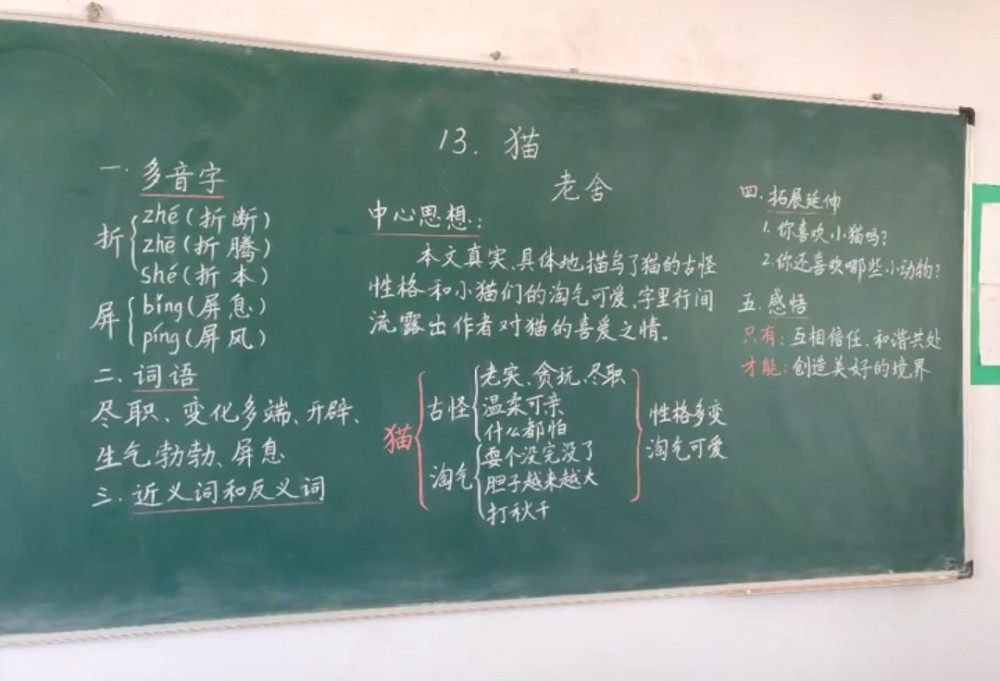 13. 猫
老舍
一.多音字
折 zhé(折断)
zhē(折腾)
shé(折本)
屏 bǐng(屏息)
píng(屏风)
二.词语
尽职、变化多端、开辟、
生气勃勃、屏息
三.近义词和反义词
中心思想:
本文真实、具体地描写了猫的古怪
性格和小猫们的淘气可爱,字里行间
流露出作者对猫的喜爱之情。
猫
古怪
老实、贪玩、尽职
温柔可亲
什么都怕
淘气
耍个没完没了
胆子越来越大
打秋千
性格多变
淘气可爱
四.拓展延伸
1.你喜欢小猫吗?
2.你还喜欢哪些小动物?
五.感悟
只有:互相信任、和谐共处
才能:创造美好的境界